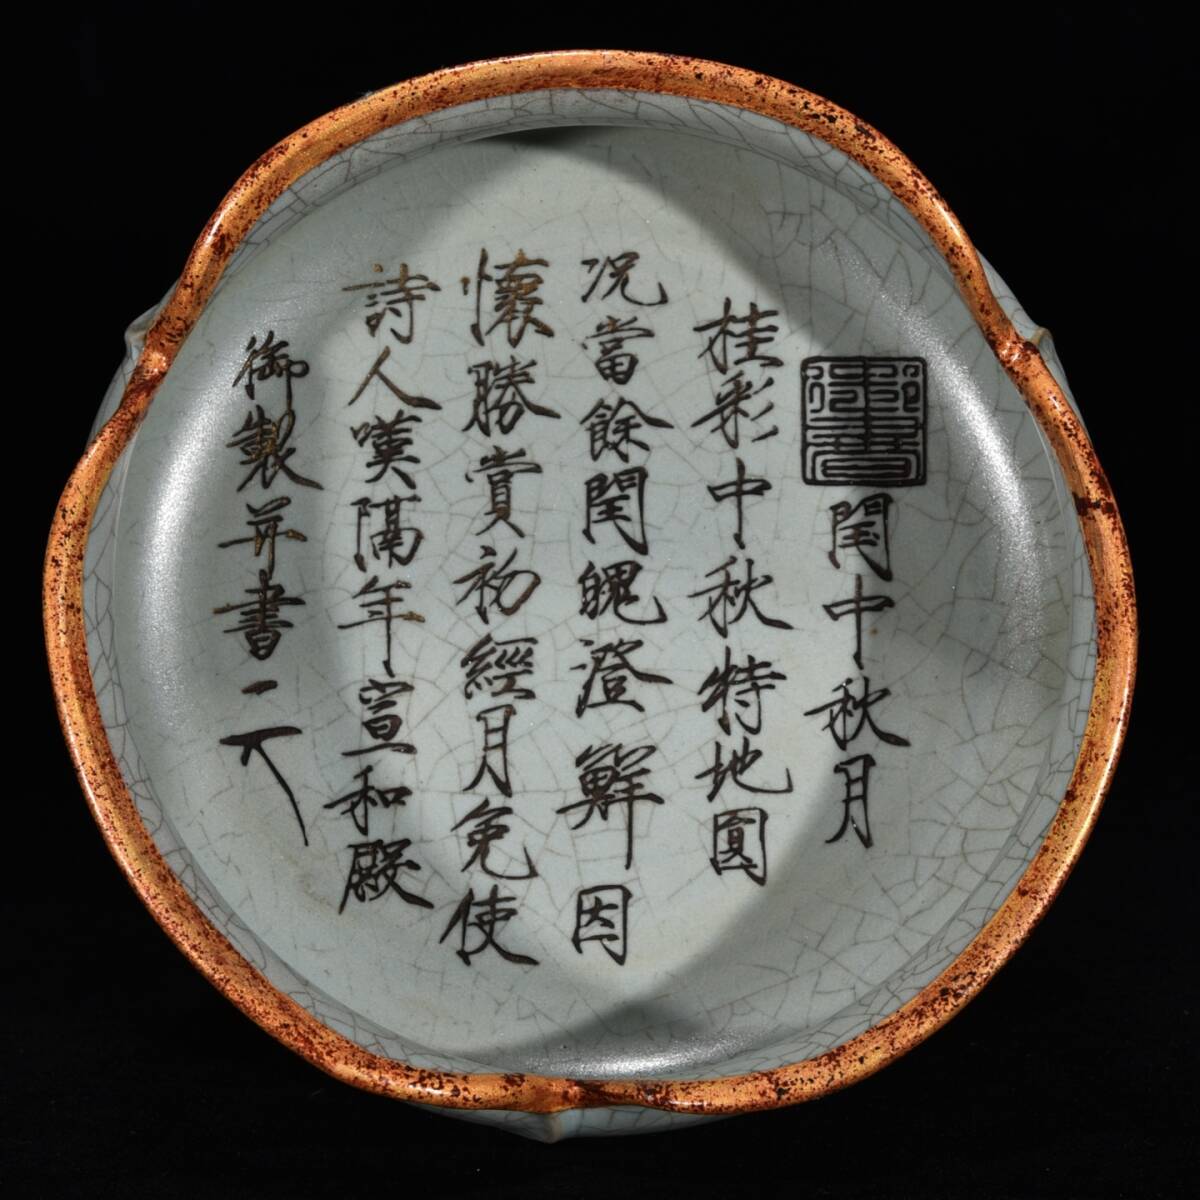 御書
閏中秋月
桂彩中秋特地圓
况當餘閏魄澄鮮因
懷勝賞初經月免使
詩人嘆隔年宣和殿
御製并書